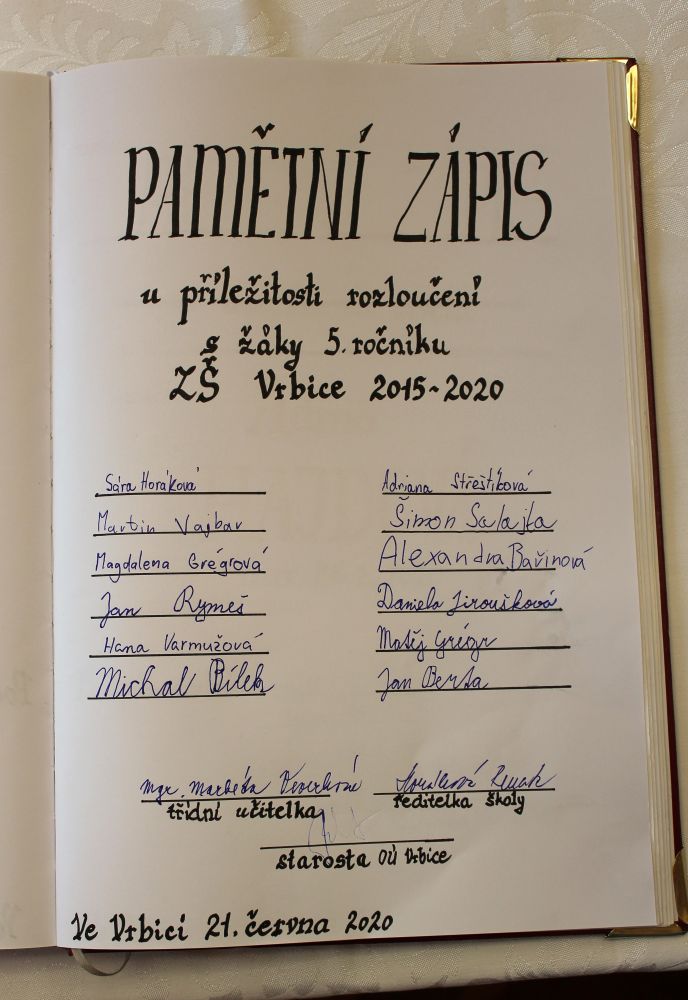 PAMĚTNÍ ZÁPIS
u příležitosti rozloučení
s žáky 5. ročníku
ZŠ Vrbice 2015-2020
Sára Horáková
Martin Vajbar
Magdalena Grégrová
Jan Rymeš
Hana Varmužová
Michal Bílek
Adriana Střeštíková
Šimon Salajka
Alexandra Bařinová
Daniela Jiroušková
Matěj Grégr
Jan Berta
Mgr. Markéta
třídní učitelka
Horáková
ředitelka školy
starosta OÚ Vrbice
Ve Vrbici 21. června 2020